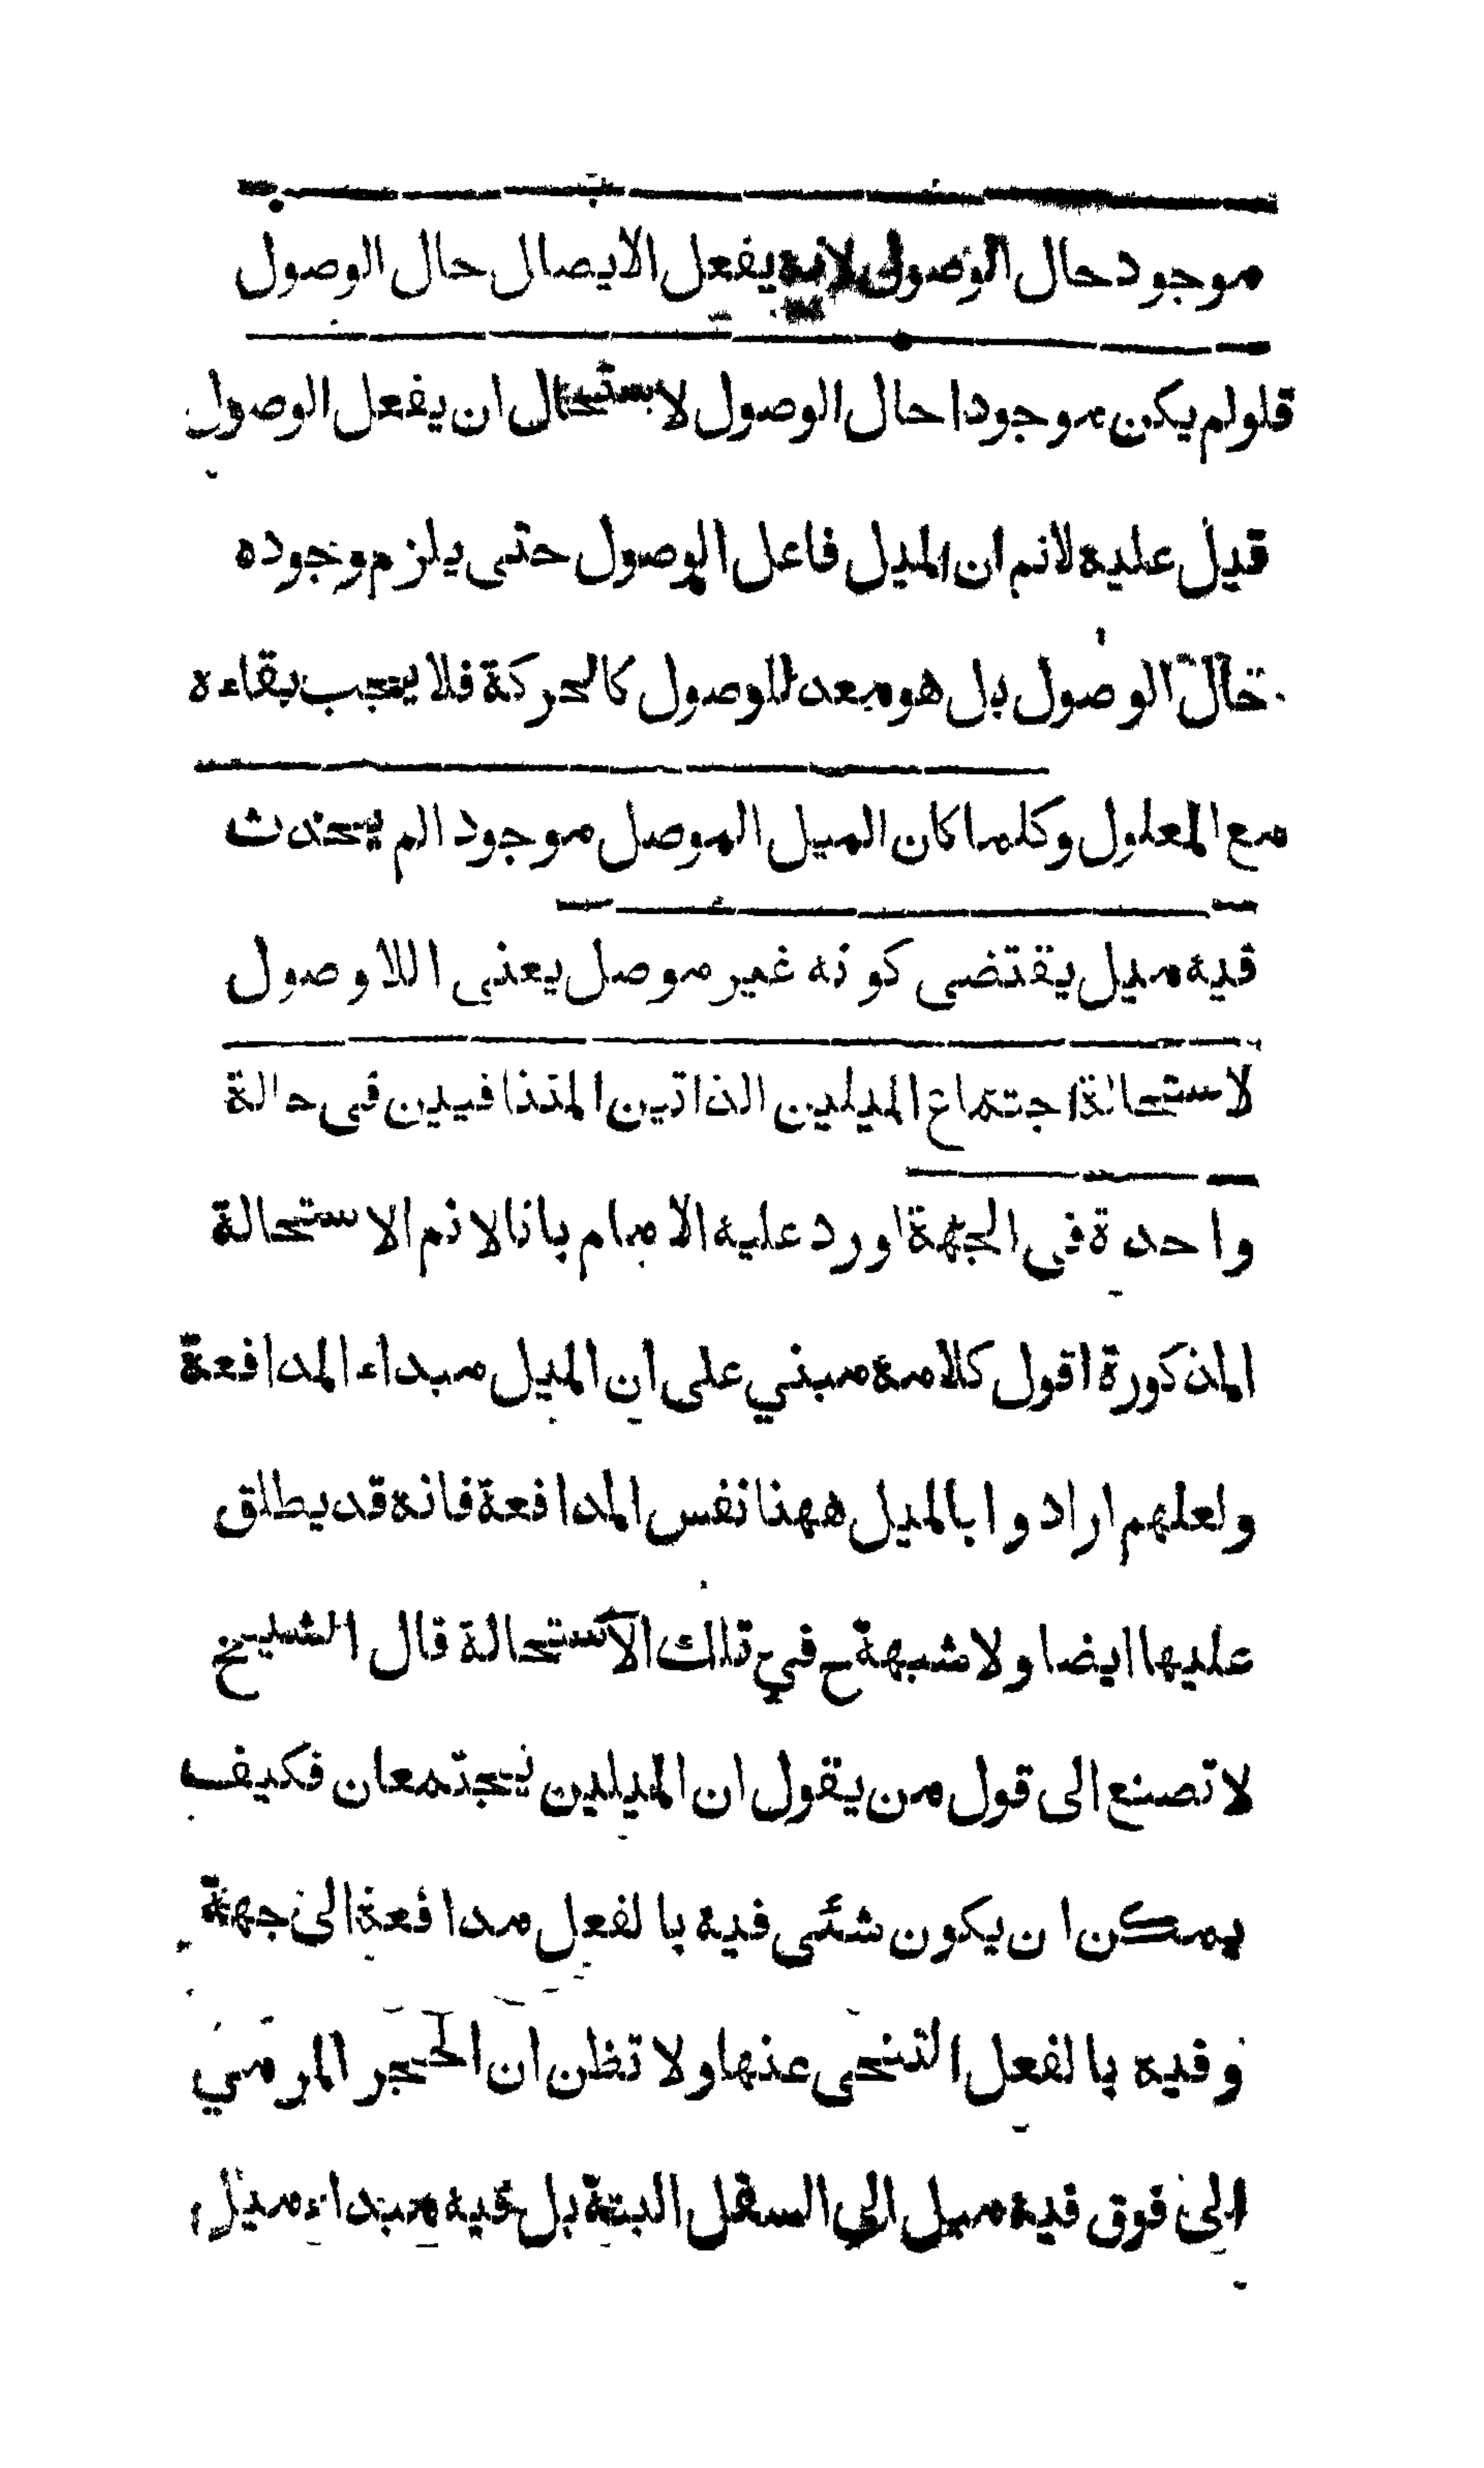 موجود حال الوصول لانه يفعل الايصال حال الوصول
فلولم يكن موجودا حال الوصول لاستحال ان يفعل الوصول
قيل عليه لانم ان الميل فاعل الوصول حتى يلزم وجوده
حال الوصول بل هو معد للوصول كالحركة فلا يجب بقاءه
مع المعلول وكلما كان الميل الموصل موجودا لم يحدث
فيه ميل يقتضى كونه غير موصل يعنى اللاوصول
لاستحالة اجتماع الميلين الذاتين المتنافيين فى حالة
واحدة فى الجهة اورد عليه الامام بانا لانم الاستحالة
المذكورة اقول كلامه مبني على ان الميل مبداء المدافعة
ولعلهم ارادوا بالميل ههنا نفس المدافعة فانه قد يطلق
عليها ايضا ولا شبهة ح في تلك الاستحالة قال الشيخ
لا تصنع الى قول من يقول ان الميلين يجتمعان فكيف
يمكن ان يكون شئى فيه بالفعل مدافعة الى جهة
وفيه بالفعل التنحى عنها ولا تظن ان الحجر المرمي
الى فوق فيه ميل الى السفل البتة بل فيه مبداء ميل